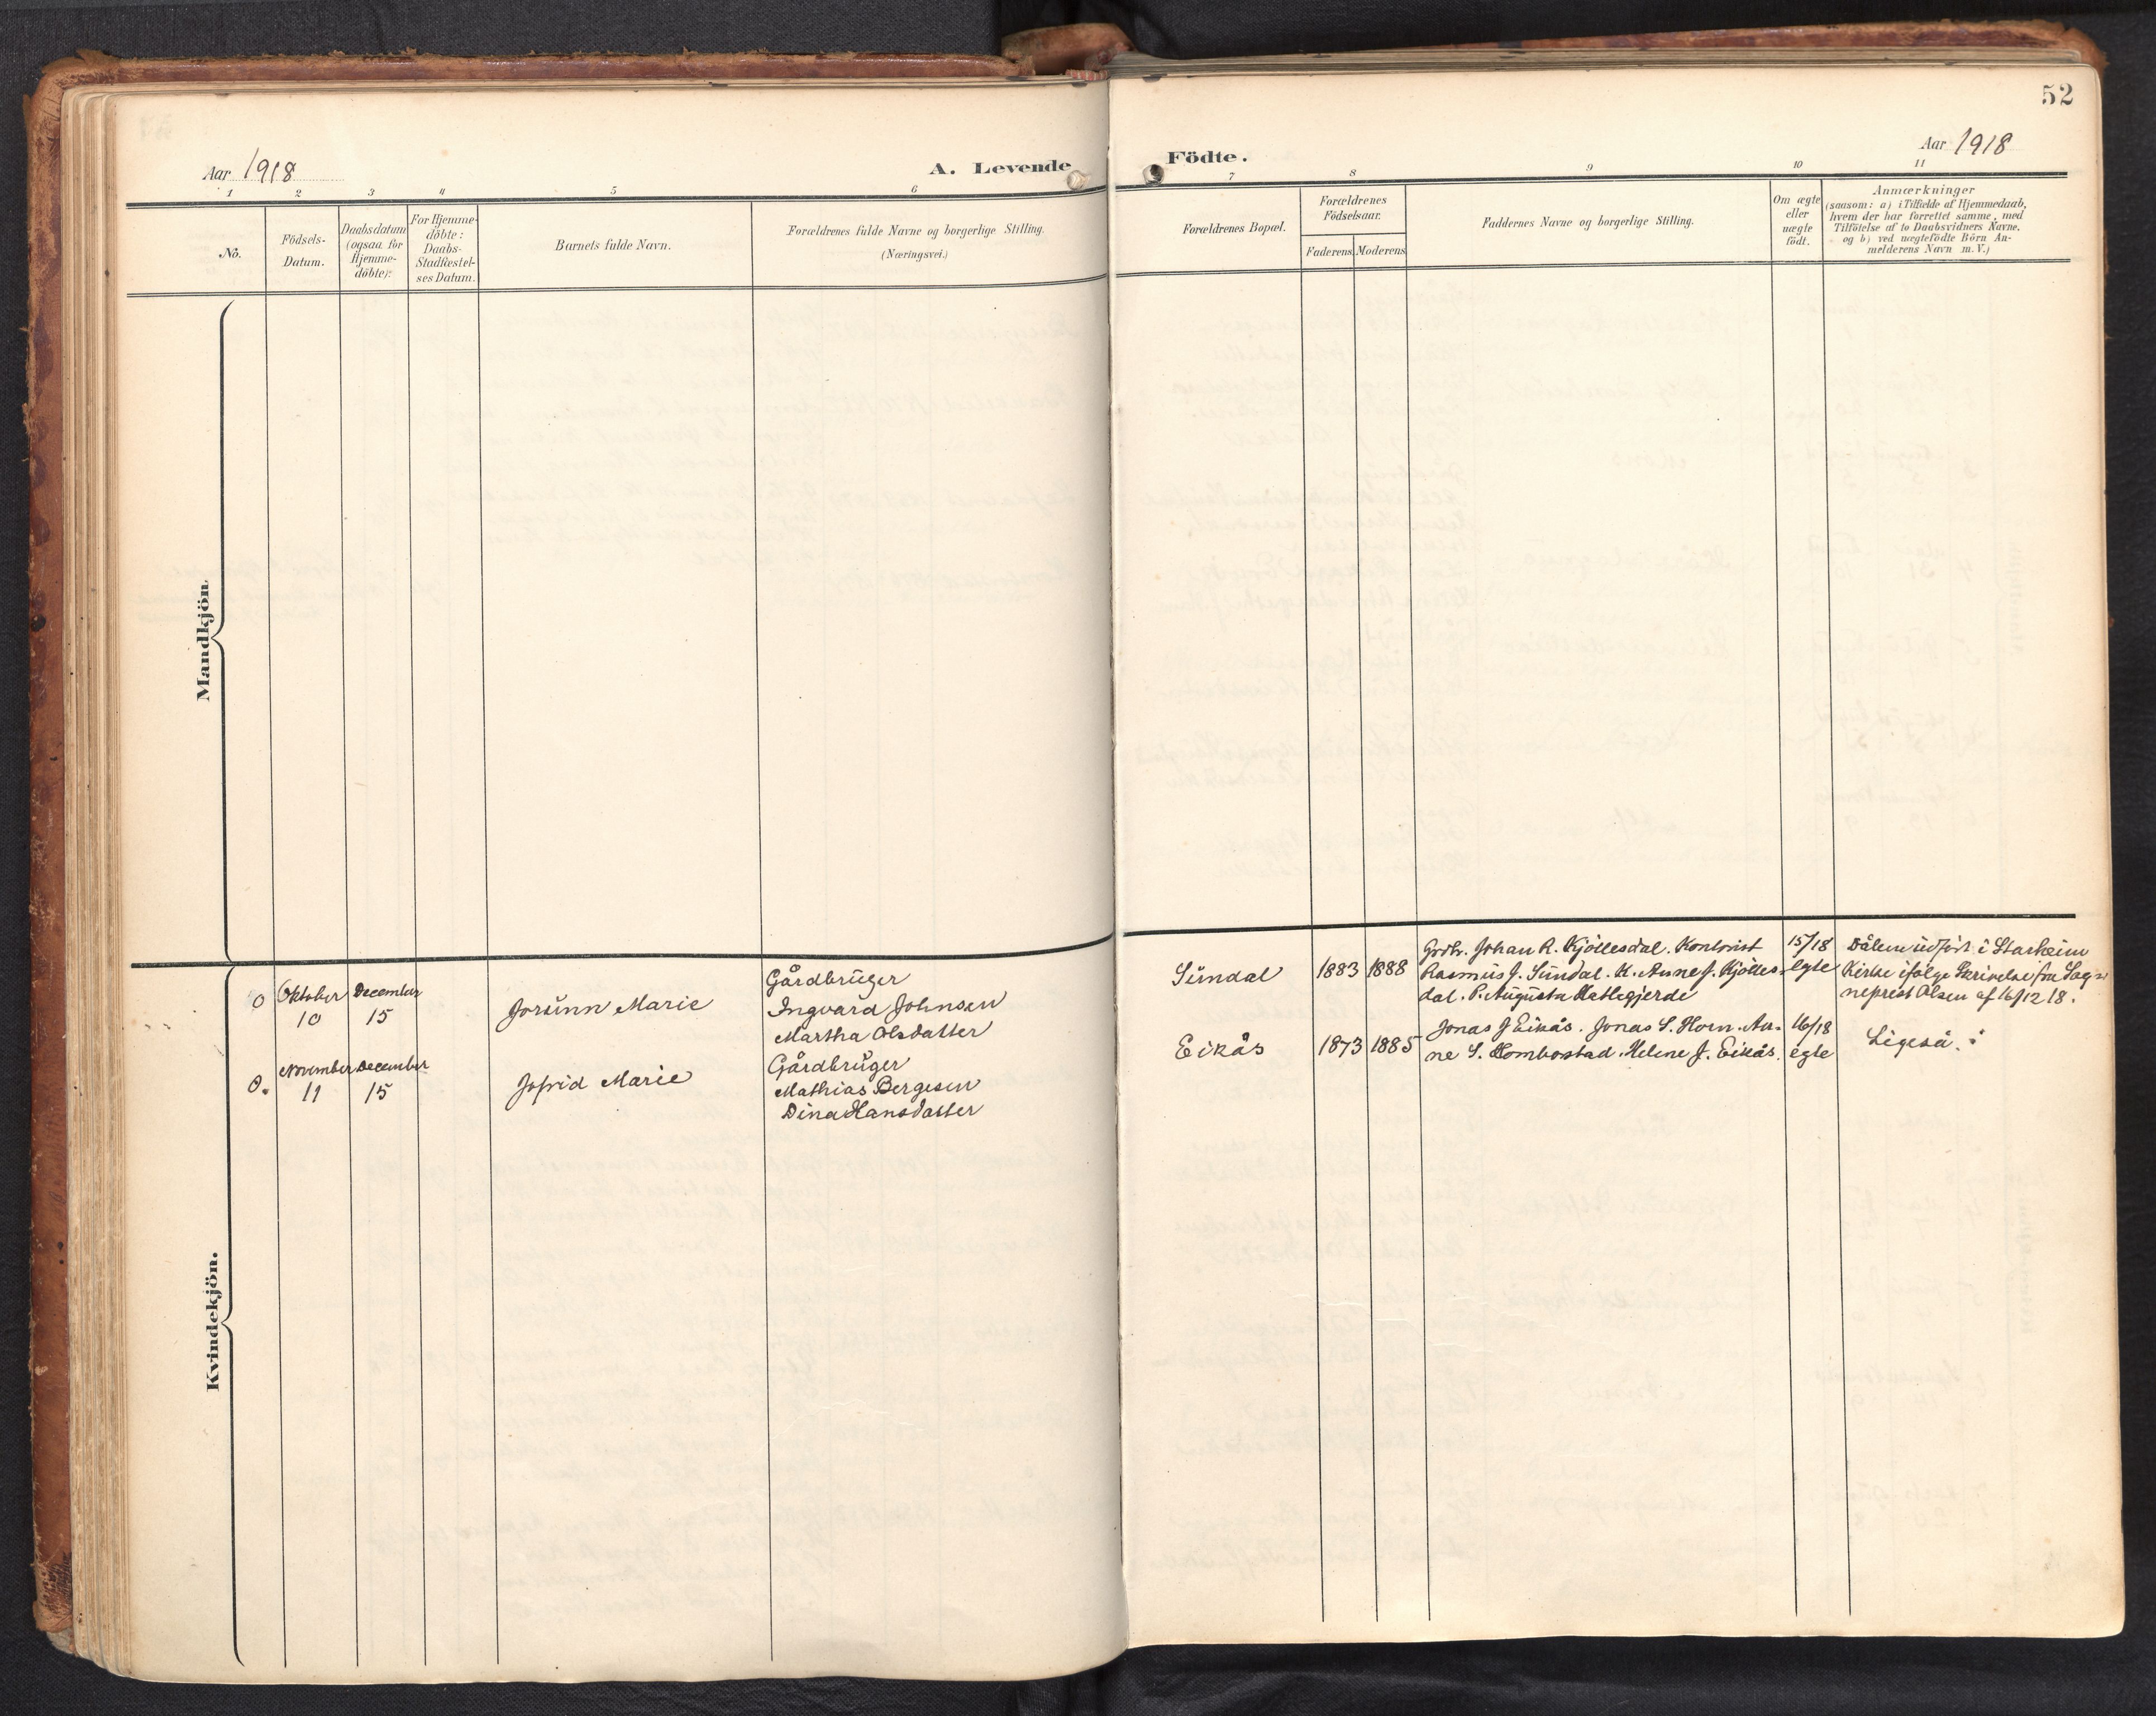 52
Aar 1918
A. Levende Födte.
Aar 1918
1 2 3 4 5 6 7 8 9 10 11
No.
Födsels-
Datum.
Daabsdatum
(ogsaa for
Hjemme-
döbte).
For Hjemme-
döbte:
Daabs-
Stadfæstel-
ses Datum.
Barnets fulde Navn.
Forældrenes fulde Navne og borgerlige Stilling.
(Næringsvei.)
Forældrenes Bopæl.
Forældrenes
Födselsaar.
Faderens Moderens
Faddernes Navne og borgerlige Stilling.
Om ægte
eller
uægte
födt.
Anmærkninger
(saasom: a) i Tilfælde af Hjemmedaab,
hvem der har forrettet samme, med
Tilföielse af to Daabsvidners Navne.
og b) ved uægtefödte Börn An-
melderens Navn m. V.)
Mandkjön.
Kvindekjön.
0
Oktober
10
December
15
Jorunn Marie
Gårdbruger
Ingvard Johnsen
Martha Olsdatter
Sundal
1883 1888
Grdbr. Johan R. Kjöllesdal. Kontorist
Rasmus J. Sundal. K. Anne J. Kjölles-
dal. P. Augusta Hatlegjerde
15/18
egte
Dåben udført i Starheim
Kirke ifølge Skrivelse fra Sog-
neprest Olsen af 16/12 18.
0.
November
11
December
15
Jofrid Marie
Gårdbruger
Mathias Bergesen
Dina Hansdatter
Eikås
1873 1885
Jonas J Eikås. Jonas S. Horn. An-
ne S. Hombostad. Helene J. Eikås.
16/18
egte
Ligeså.